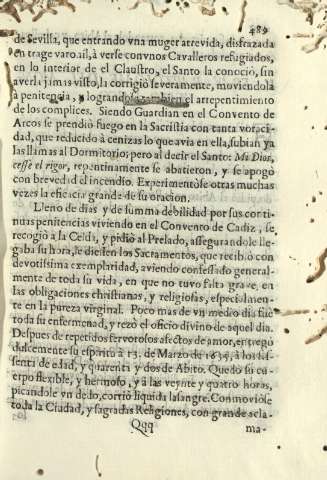 489
de Sevilla, que entrando vna muger atrevida, disfrazada
en trage varonil, à verse con vnos Cavalleros refugiados,
en lo interior de el Claustro, el Santo la conociò, sin
averla jamas visto, la corrigiò severamente, moviendola
à penitencia, y logrando tambien el arrepentimiento
de los complices. Siendo Guardian en el Convento de
Arcos se prendiò fuego en la Sacristia con tanta voraci-
dad, que reducido à cenizas lo que avia en ella, subian ya
las llamas al Dormitorio; pero al decir el Santo: Mi Dios,
cesse el rigor, repentinamente se abatieron, y se apagò
con brevedad el incendio. Experimentòse otras muchas
vezes la eficacia grande de su oracion.
Lleno de dias y de summa debilidad por sus conti-
nuas penitencias viviendo en el Convento de Cadiz, se
recogiò a la Celda, y pidiò al Prelado, assegurandole lle-
gaba su hora, le diessen los Sacramentos, que recibiò con
devotissima exemplaridad, aviendo confessado general-
mente de toda su vida, en que no tuvo falta grave, en
las obligaciones christianas, y religiosas, especialmen-
te en la pureza virginal. Poco mas de vn medio dia fue
toda su enfermedad, y rezò el oficio divino de aquel dia.
Despues de repetidos fervorosos afectos de amor, entregò
dulcemente su espiritu à 13. de Marzo de 1635, à los se-
senta de edad, y quarenta y dos de Abito. Quedò su cu-
erpo flexible, y hermoso, y à las veynte y quatro horas,
picandole vn dedo, corriò liquida la sangre. Conmoviose
toda la Ciudad, y sagradas Religiones, con grande acla-
Qqq
ma-